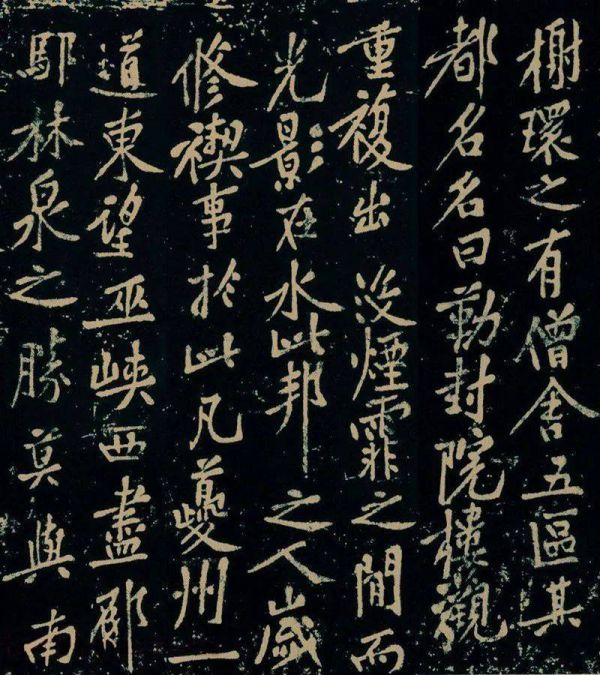 榭環之有僧舍五區其
都名名曰勒封院樓觀
重複出没煙霏之間而
光影在水此邦之人歲
修禊事於此凡夔州一
道東望巫峽西盡郁
鄢林泉之勝莫與南